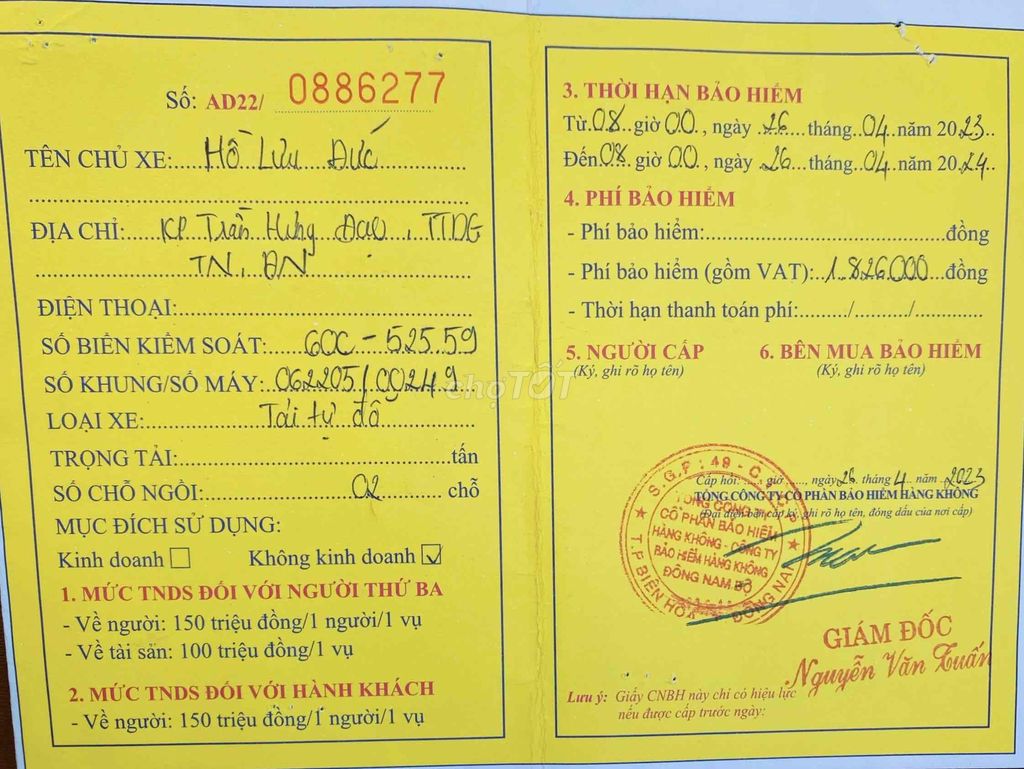 Số: AD22/ 0886277
TÊN CHỦ XE: Hồ Lưu Đức
ĐỊA CHỈ: KP Trần Hưng Đạo, TTDG
TN, ĐN
ĐIỆN THOẠI:
SỐ BIỂN KIỂM SOÁT: 60C-525.59
SỐ KHUNG/SỐ MÁY: 062205/00249
LOẠI XE: Tải tự đổ
TRỌNG TẢI: tấn
SỐ CHỖ NGỒI: 02 chỗ
MỤC ĐÍCH SỬ DỤNG:
Kinh doanh Không kinh doanh
1. MỨC TNDS ĐỐI VỚI NGƯỜI THỨ BA
- Về người: 150 triệu đồng/1 người/1 vụ
- Về tài sản: 100 triệu đồng/1 vụ
2. MỨC TNDS ĐỐI VỚI HÀNH KHÁCH
- Về người: 150 triệu đồng/1 người/1 vụ
3. THỜI HẠN BẢO HIỂM
Từ 08 giờ 00, ngày 26 tháng 04 năm 2023
Đến 08 giờ 00, ngày 26 tháng 04 năm 2024
4. PHÍ BẢO HIỂM
- Phí bảo hiểm: đồng
- Phí bảo hiểm (gồm VAT): 1.826.000 đồng
- Thời hạn thanh toán phí: / /
5. NGƯỜI CẤP 6. BÊN MUA BẢO HIỂM
(Ký, ghi rõ họ tên) (Ký, ghi rõ họ tên)
chợTỐT
Cấp hồi: , giờ , ngày 26 tháng 4 năm 2023
TỔNG CÔNG TY CỔ PHẦN BẢO HIỂM HÀNG KHÔNG
(Đại diện bên cấp ký, ghi rõ họ tên, đóng dấu của nơi cấp)
TỔNG CÔNG TY
CỔ PHẦN BẢO HIỂM
HÀNG KHÔNG - CÔNG TY
BẢO HIỂM HÀNG KHÔNG
ĐÔNG NAM BỘ
TP BIÊN HÒA - T. ĐỒNG NAI
GIÁM ĐỐC
Nguyễn Văn Tuấn
Lưu ý: Giấy CNBH này chỉ có hiệu lực
nếu được cấp trước ngày: